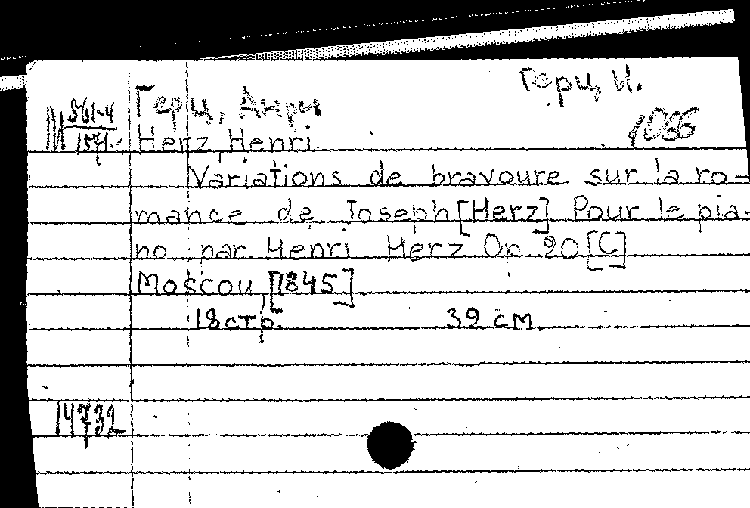 Герц, И.
М 561-4
1571.
Герц, Анри.
1066
Herz, Henri
Variations de bravoure sur la ro-
mance de Joseph [Herz]. Pour le pia-
no par Henri Herz Op. 20 [C]
Moscou, [1845]
18 стр. 39 см.
14732